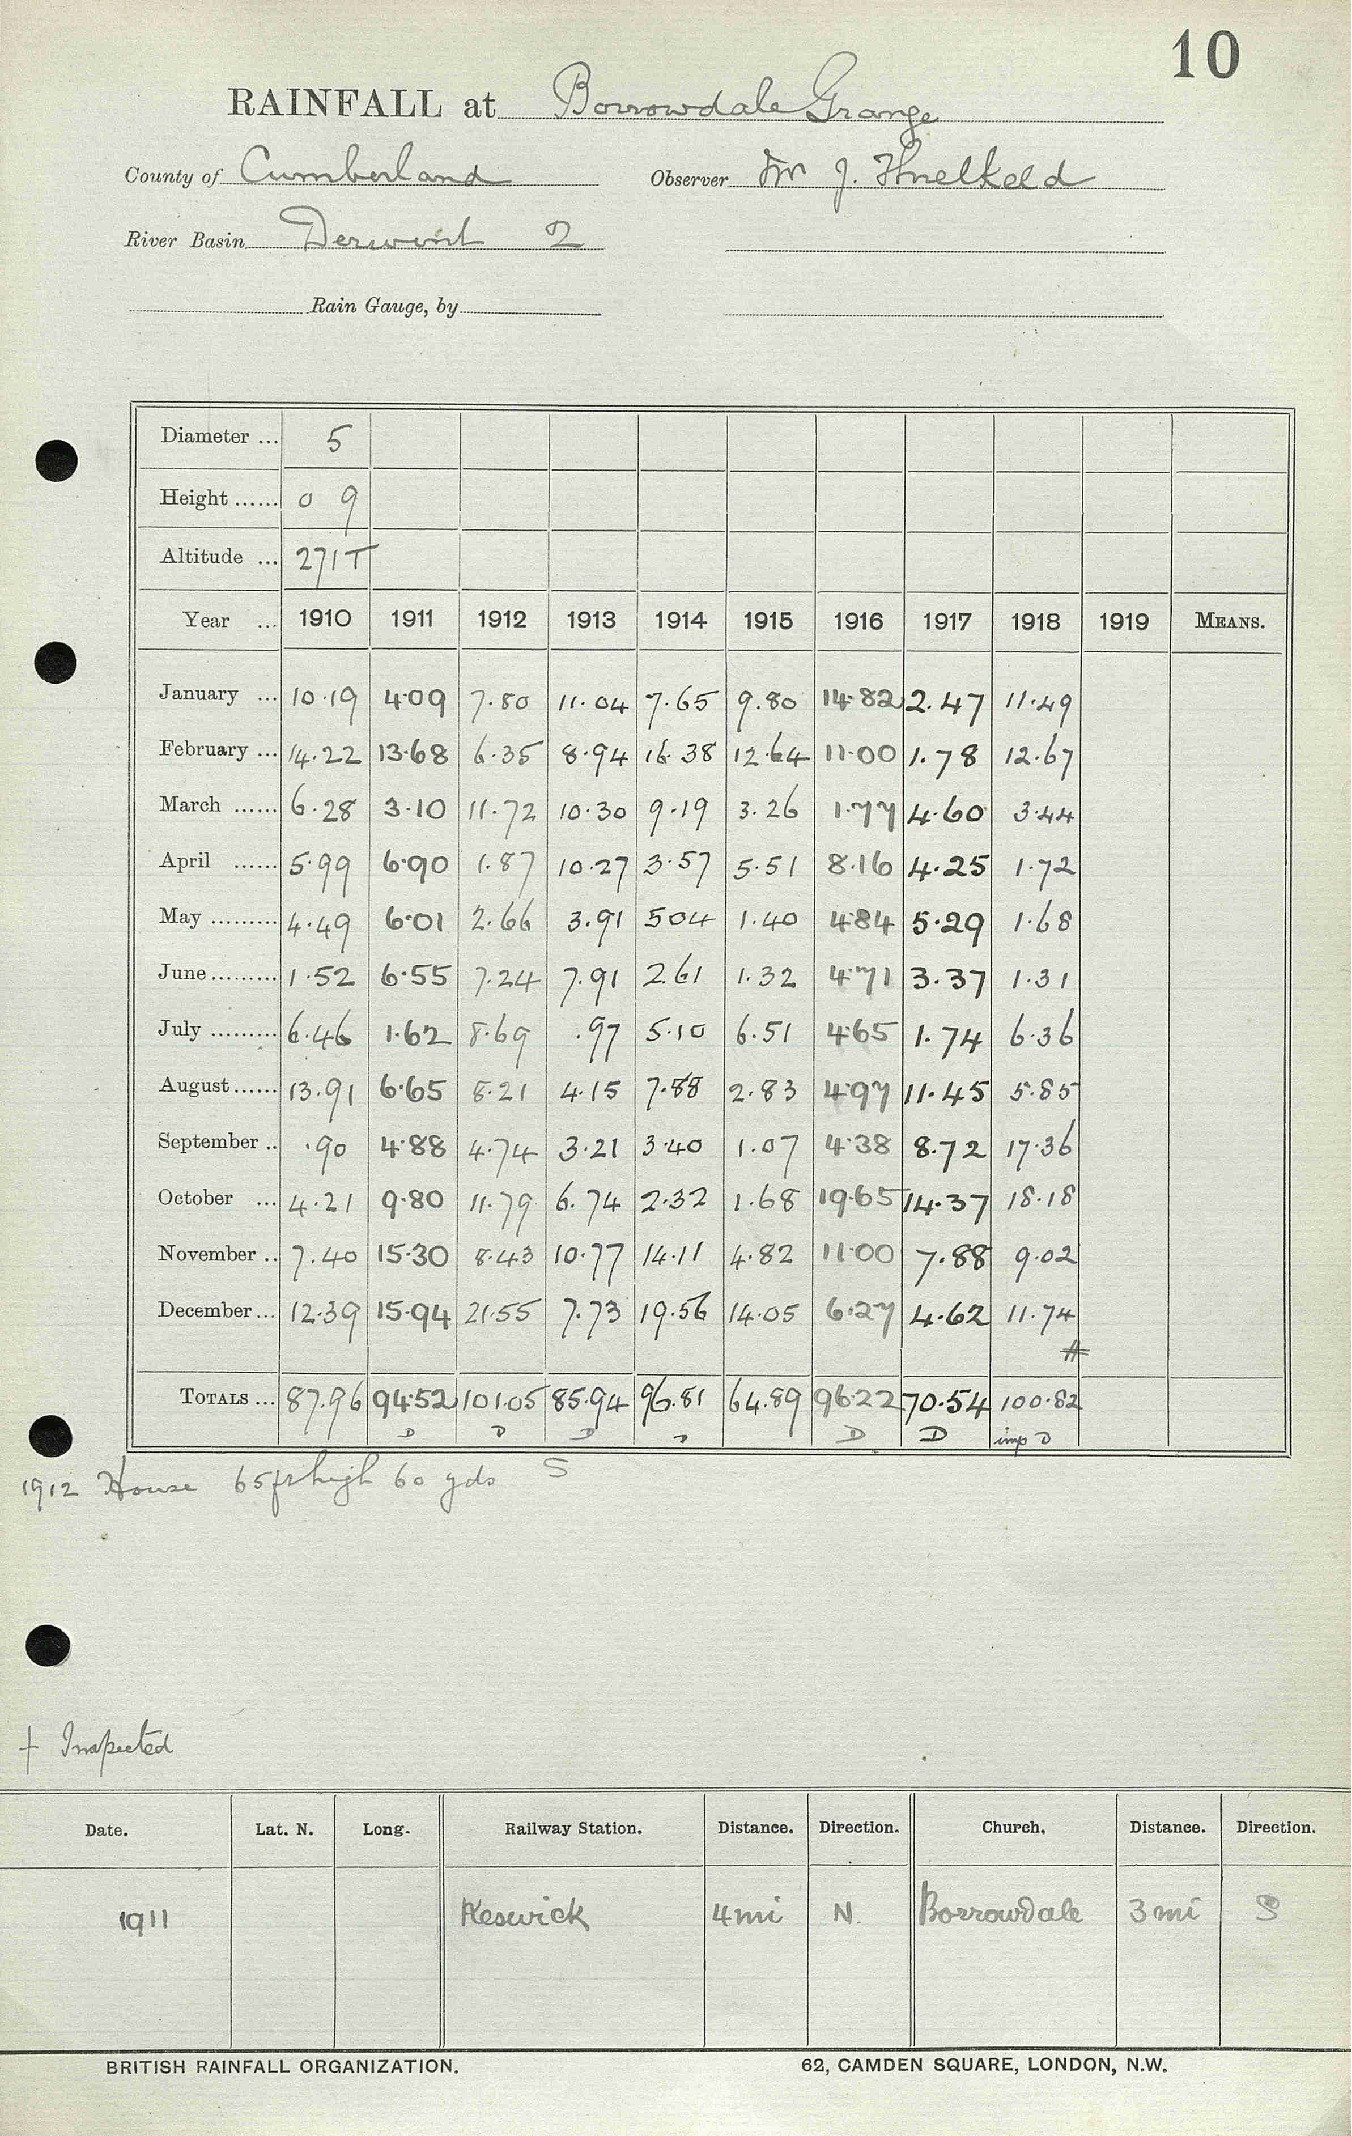 10
RAINFALL at Borrowdale Grange
County of Cumberland Observer J. Threlkeld
River Basin Derwent 2
Rain Gauge, by
Diameter ... 5
Height ...... 0 9
Altitude ... 271T
Year ... 1910 1911 1912 1913 1914 1915 1916 1917 1918 1919 MEANS.
January ... 10.19 4.09 7.80 11.04 7.65 9.80 14.82 2.47 11.49
February ... 14.22 13.68 6.35 8.94 16.38 12.64 11.00 1.78 12.67
March ...... 6.28 3.10 11.72 10.30 9.19 3.26 1.77 4.60 3.44
April ...... 5.99 6.90 1.87 10.27 3.57 5.51 8.16 4.25 1.72
May ......... 4.49 6.01 2.66 3.91 504 1.40 4.84 5.29 1.68
June ......... 1.52 6.55 7.24 7.91 2.61 1.32 4.71 3.37 1.31
July ......... 6.46 1.62 8.69 .97 5.10 6.51 4.65 1.74 6.36
August ...... 13.91 6.65 8.21 4.15 7.88 2.83 4.97 11.45 5.85
September .. .90 4.88 4.74 3.21 3.40 1.07 4.38 8.72 17.36
October ... 4.21 9.80 11.79 6.74 2.32 1.68 19.65 14.37 18.18
November .. 7.40 15.30 8.43 10.77 14.11 4.82 11.00 7.88 9.02
December ... 12.39 15.94 21.55 7.73 19.56 14.05 6.27 4.62 11.74
TOTALS ... 87.96 94.52 101.05 85.94 96.81 64.89 96.22 70.54 100.82
D D D D D D imp D
1912 House 65ft high 60 yds S
† Inspected
Date. Lat. N. Long. Railway Station. Distance. Direction. Church. Distance. Direction.
1911 Keswick 4mi N. Borrowdale 3mi S
BRITISH RAINFALL ORGANIZATION. 62, CAMDEN SQUARE, LONDON, N.W.